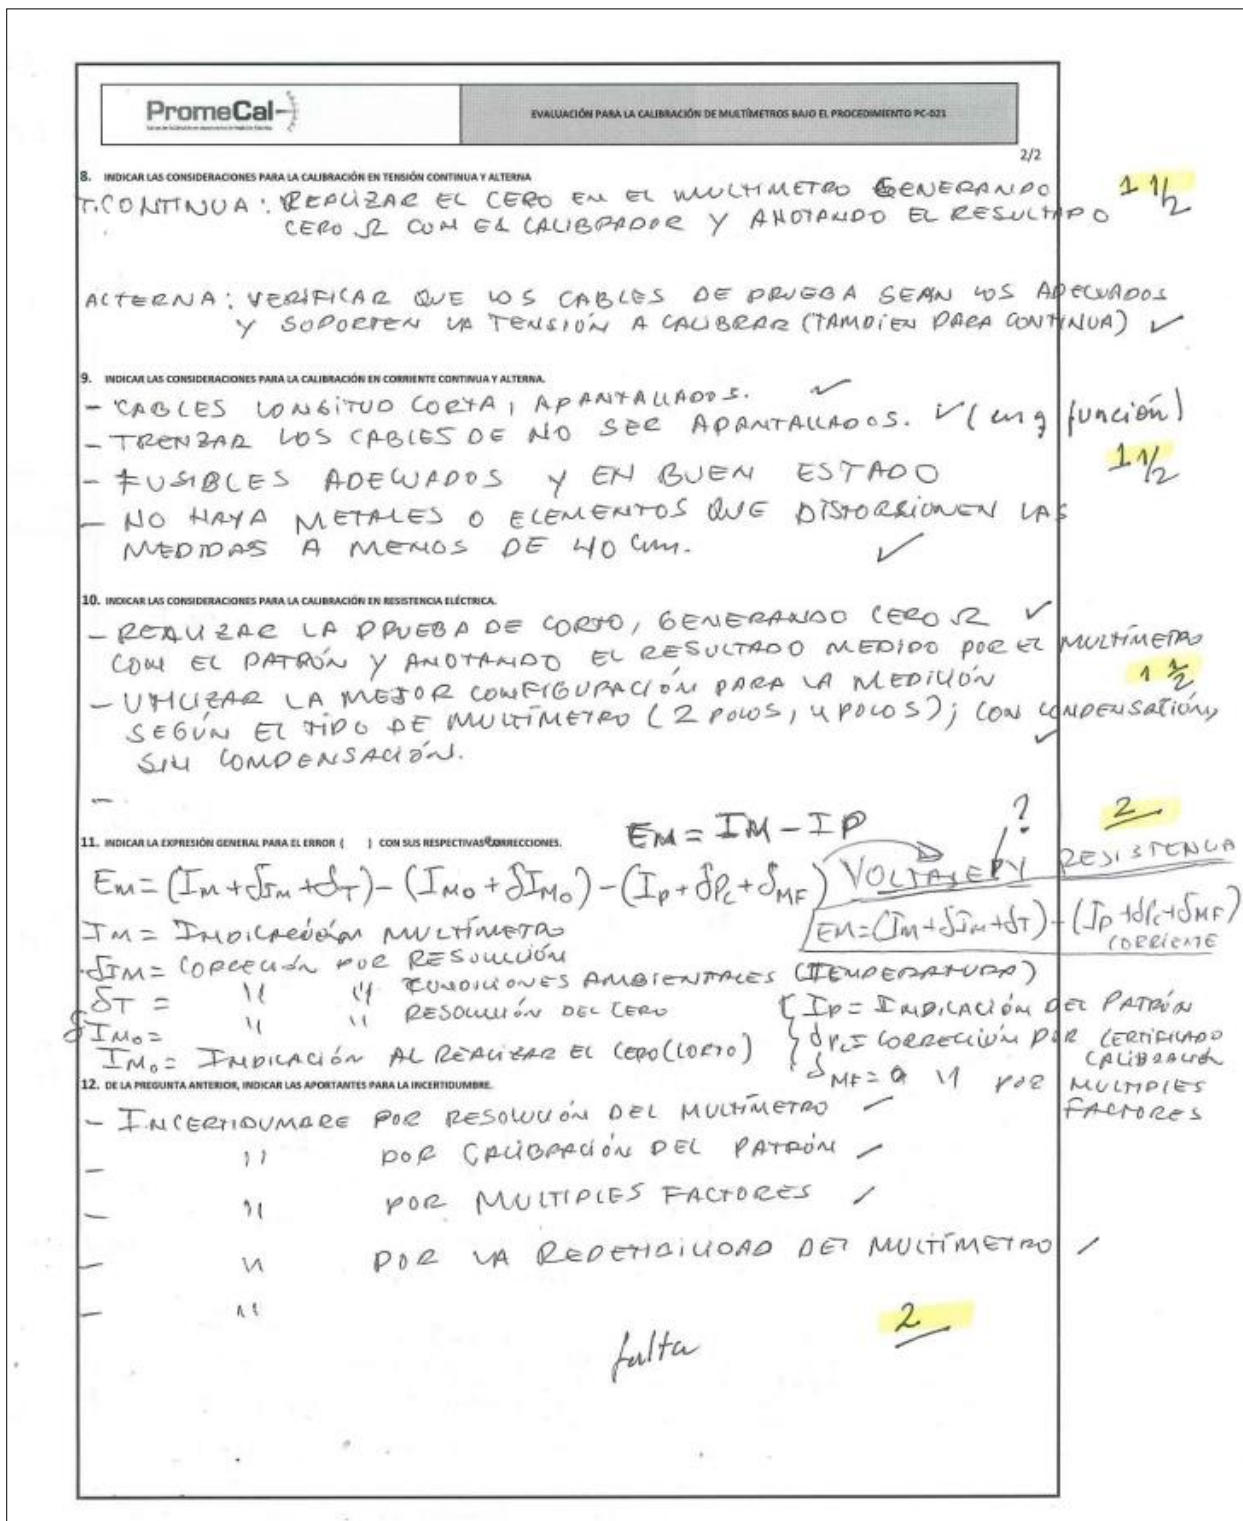 PromeCal
EVALUACIÓN PARA LA CALIBRACIÓN DE MULTÍMETROS BAJO EL PROCEDIMIENTO PC-021
2/2
8. INDICAR LAS CONSIDERACIONES PARA LA CALIBRACIÓN EN TENSIÓN CONTINUA Y ALTERNA
T.CONTINUA: REALIZAR EL CERO EN EL MULTIMETRO GENERANDO 1 1/2
CERO Ω CON EL CALIBRADOR Y ANOTANDO EL RESULTADO
ALTERNA: VERIFICAR QUE LOS CABLES DE PRUEBA SEAN LOS ADECUADOS
Y SOPORTEN LA TENSIÓN A CALIBRAR (TAMBIEN PARA CONTINUA) ✓
9. INDICAR LAS CONSIDERACIONES PARA LA CALIBRACIÓN EN CORRIENTE CONTINUA Y ALTERNA.
- CABLES LONGITUD CORTA, APANTALLADOS. ✓
- TRENZAR LOS CABLES DE NO SER APANTALLADOS. ✓ ( función)
- FUSIBLES ADECUADOS Y EN BUEN ESTADO 1 1/2
- NO HAYA METALES O ELEMENTOS QUE DISTORSIONEN LAS
MEDIDAS A MENOS DE 40 cm. ✓
10. INDICAR LAS CONSIDERACIONES PARA LA CALIBRACIÓN EN RESISTENCIA ELÉCTRICA.
- REALIZAR LA PRUEBA DE CORTO, GENERANDO CERO Ω ✓
CON EL PATRÓN Y ANOTANDO EL RESULTADO MEDIDO POR EL MULTÍMETRO
- UTILIZAR LA MEJOR CONFIGURACIÓN PARA LA MEDICIÓN 1 1/2
SEGÚN EL TIPO DE MULTÍMETRO (2 POLOS, 4 POLOS); CON COMPENSACIÓN,
SIN COMPENSACIÓN. ✓
-
EM = IM - IP ? 2
11. INDICAR LA EXPRESIÓN GENERAL PARA EL ERROR ( ) CON SUS RESPECTIVAS CORRECCIONES.
EM = (IM + δIM + δT) - (IMo + δIMo) - (IP + δPc + δMF) VOLTAJE Y RESISTENCIA
EM = (IM + δIM + δT) - (IP + δPc + δMF)
CORRIENTE
IM = INDICACIÓN MULTÍMETRO
δIM = CORRECCIÓN POR RESOLUCIÓN
δT = " " CONDICIONES AMBIENTALES (TEMPERATURA)
δIMo = " " RESOLUCIÓN DEL CERO
IMo = INDICACIÓN AL REALIZAR EL CERO (CORTO)
IP = INDICACIÓN DEL PATRÓN
δPc = CORRECCIÓN POR CERTIFICADO
CALIBRACIÓN
δMF = " POR MULTIPLES
FACTORES
12. DE LA PREGUNTA ANTERIOR, INDICAR LAS APORTANTES PARA LA INCERTIDUMBRE.
- INCERTIDUMBRE POR RESOLUCIÓN DEL MULTÍMETRO
- " POR CALIBRACIÓN DEL PATRÓN
- " POR MULTIPLES FACTORES
- " POR LA REPETIBILIDAD DEL MULTÍMETRO
- "
2
falta